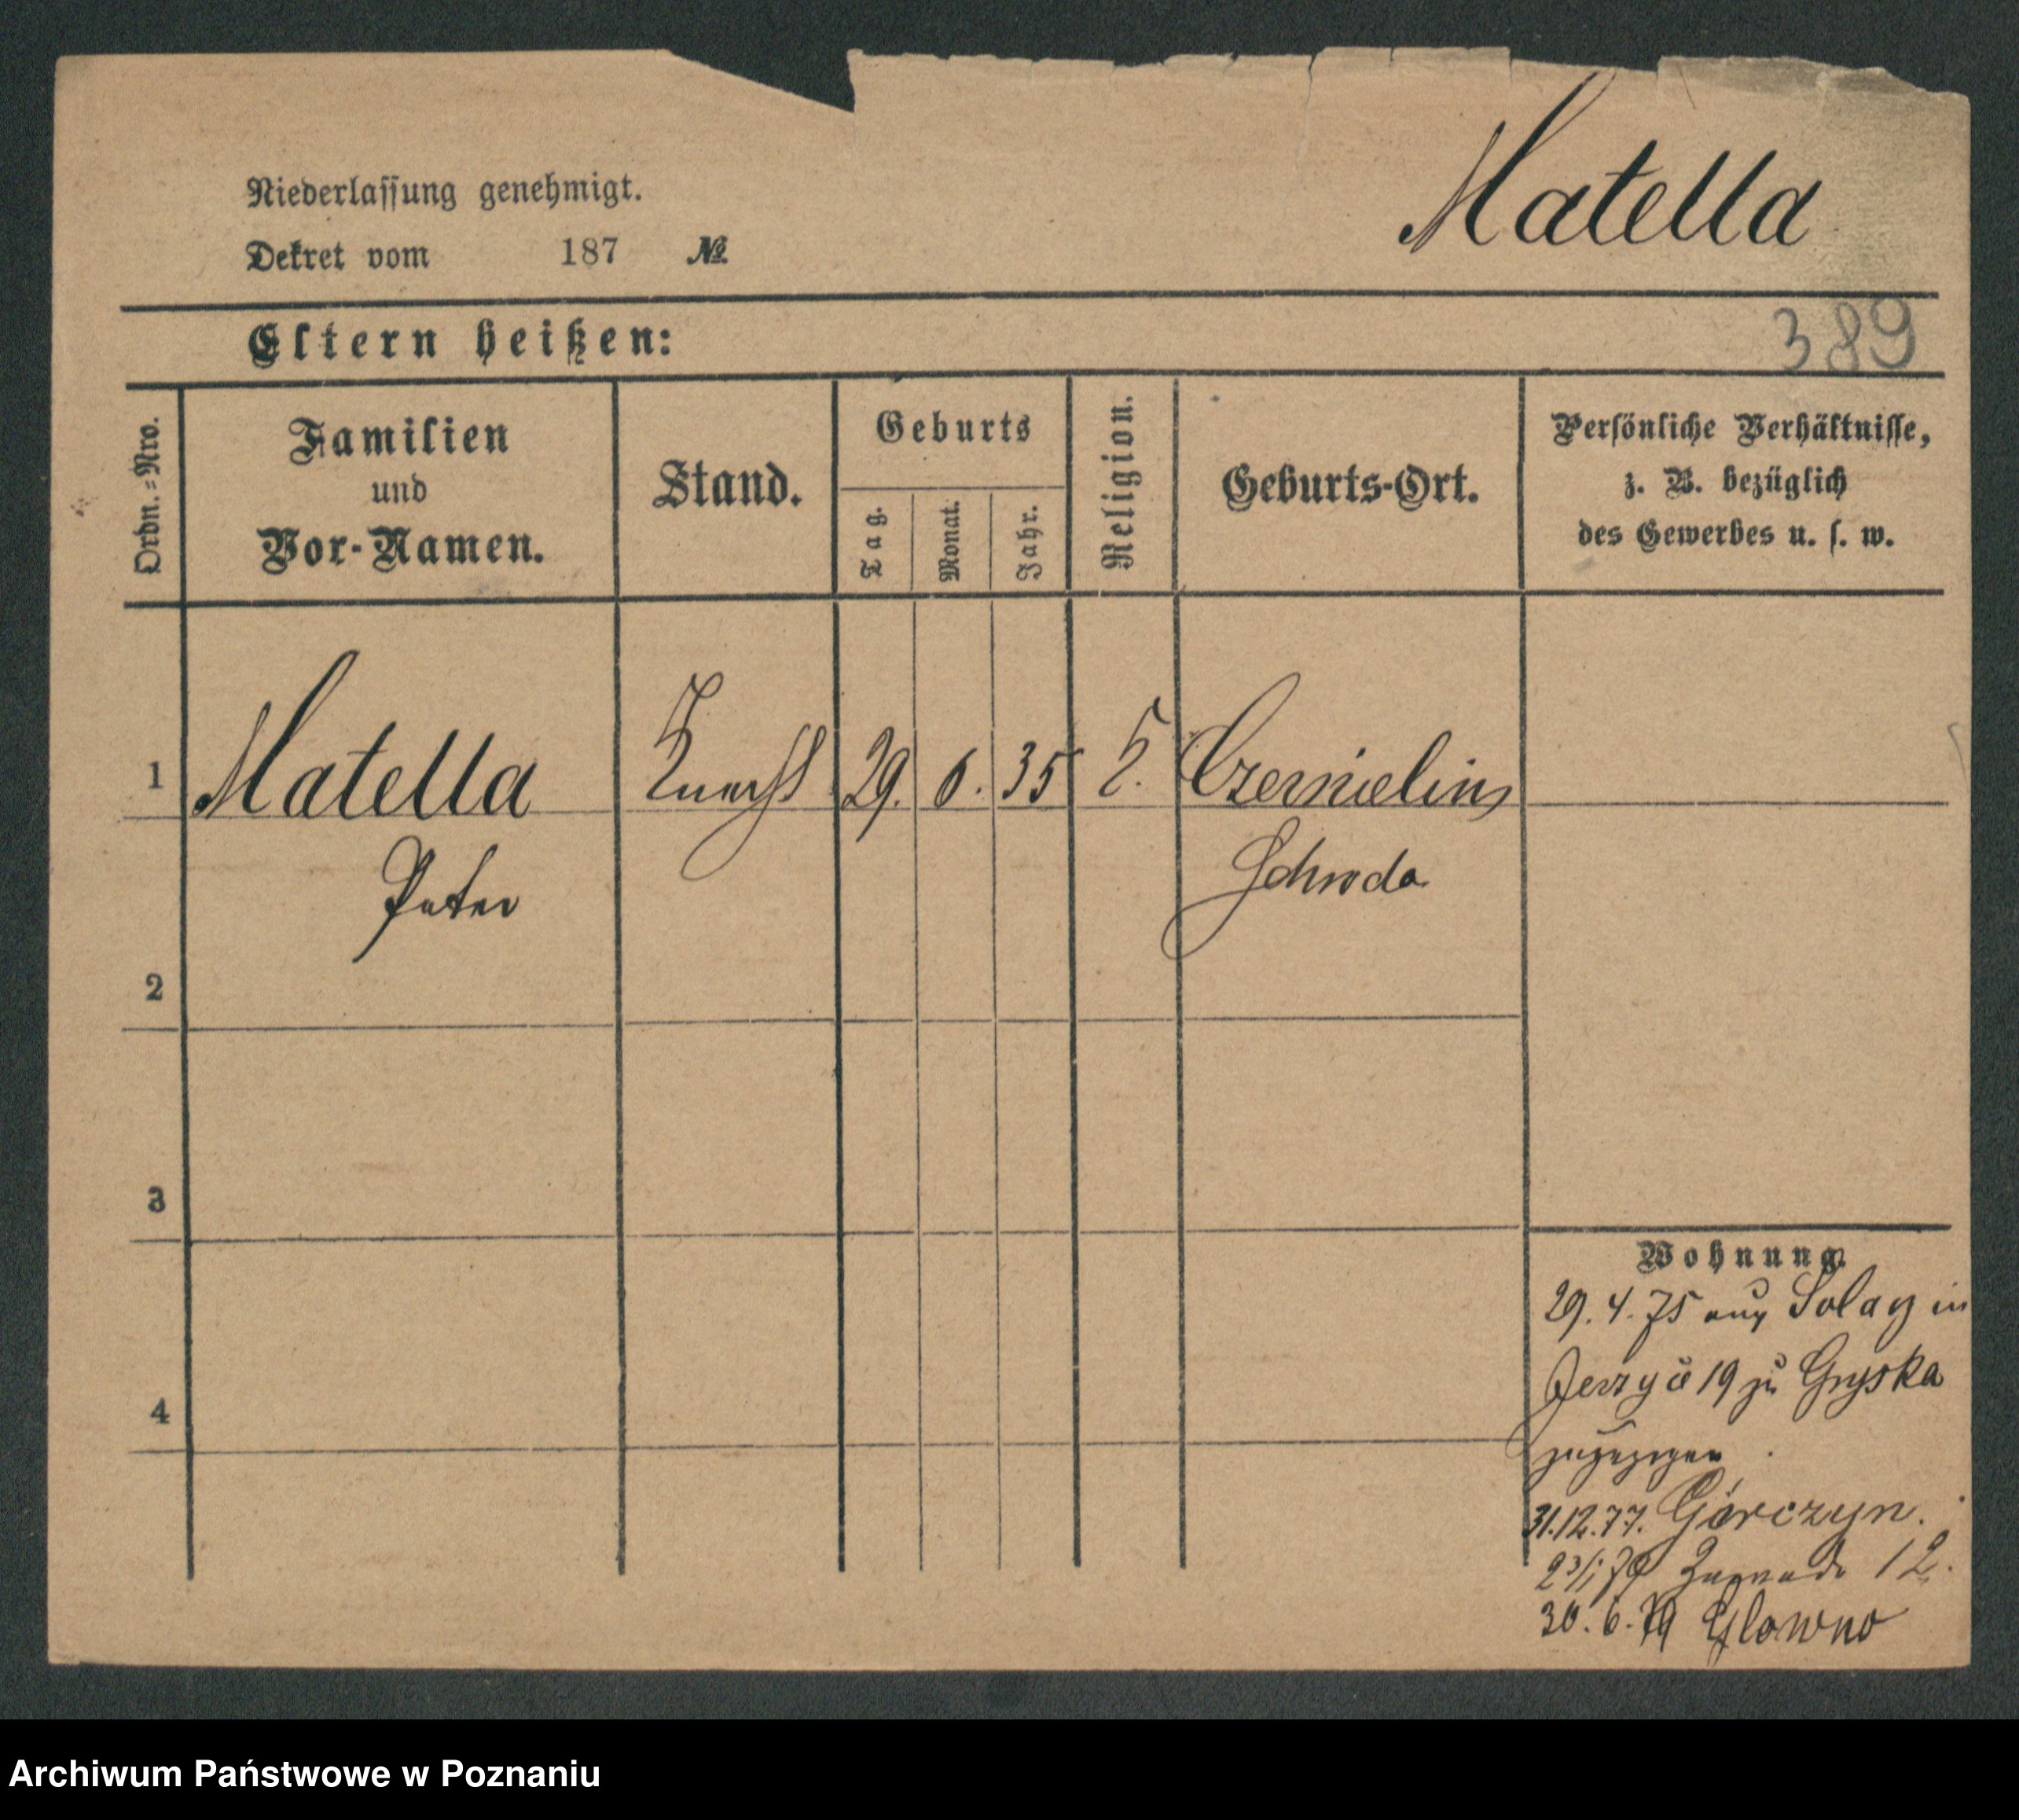 Matella
Niederlassung genehmigt.
Dekret vom 187 №
389
Eltern heißen:
Ordn.-Nro.
Familien
und
Vor-Namen.
Stand.
Geburts
Tag.
Monat.
Jahr.
Religion.
Geburts-Ort.
Persönliche Verhältnisse,
z. B. bezüglich
des Gewerbes u. s. w.
1 Matella Knecht 29. 6. 35 k. Czernielin
Peter Schroda
2
3
4
Wohnung
29. 4. 75 aus Solacz in
Jerzyce 19 zu Gryska
zugezogen
31.12.77. Górczyn.
23/1 79 Zawade 12.
30. 6. 79 Glowno
Archiwum Państwowe w Poznaniu